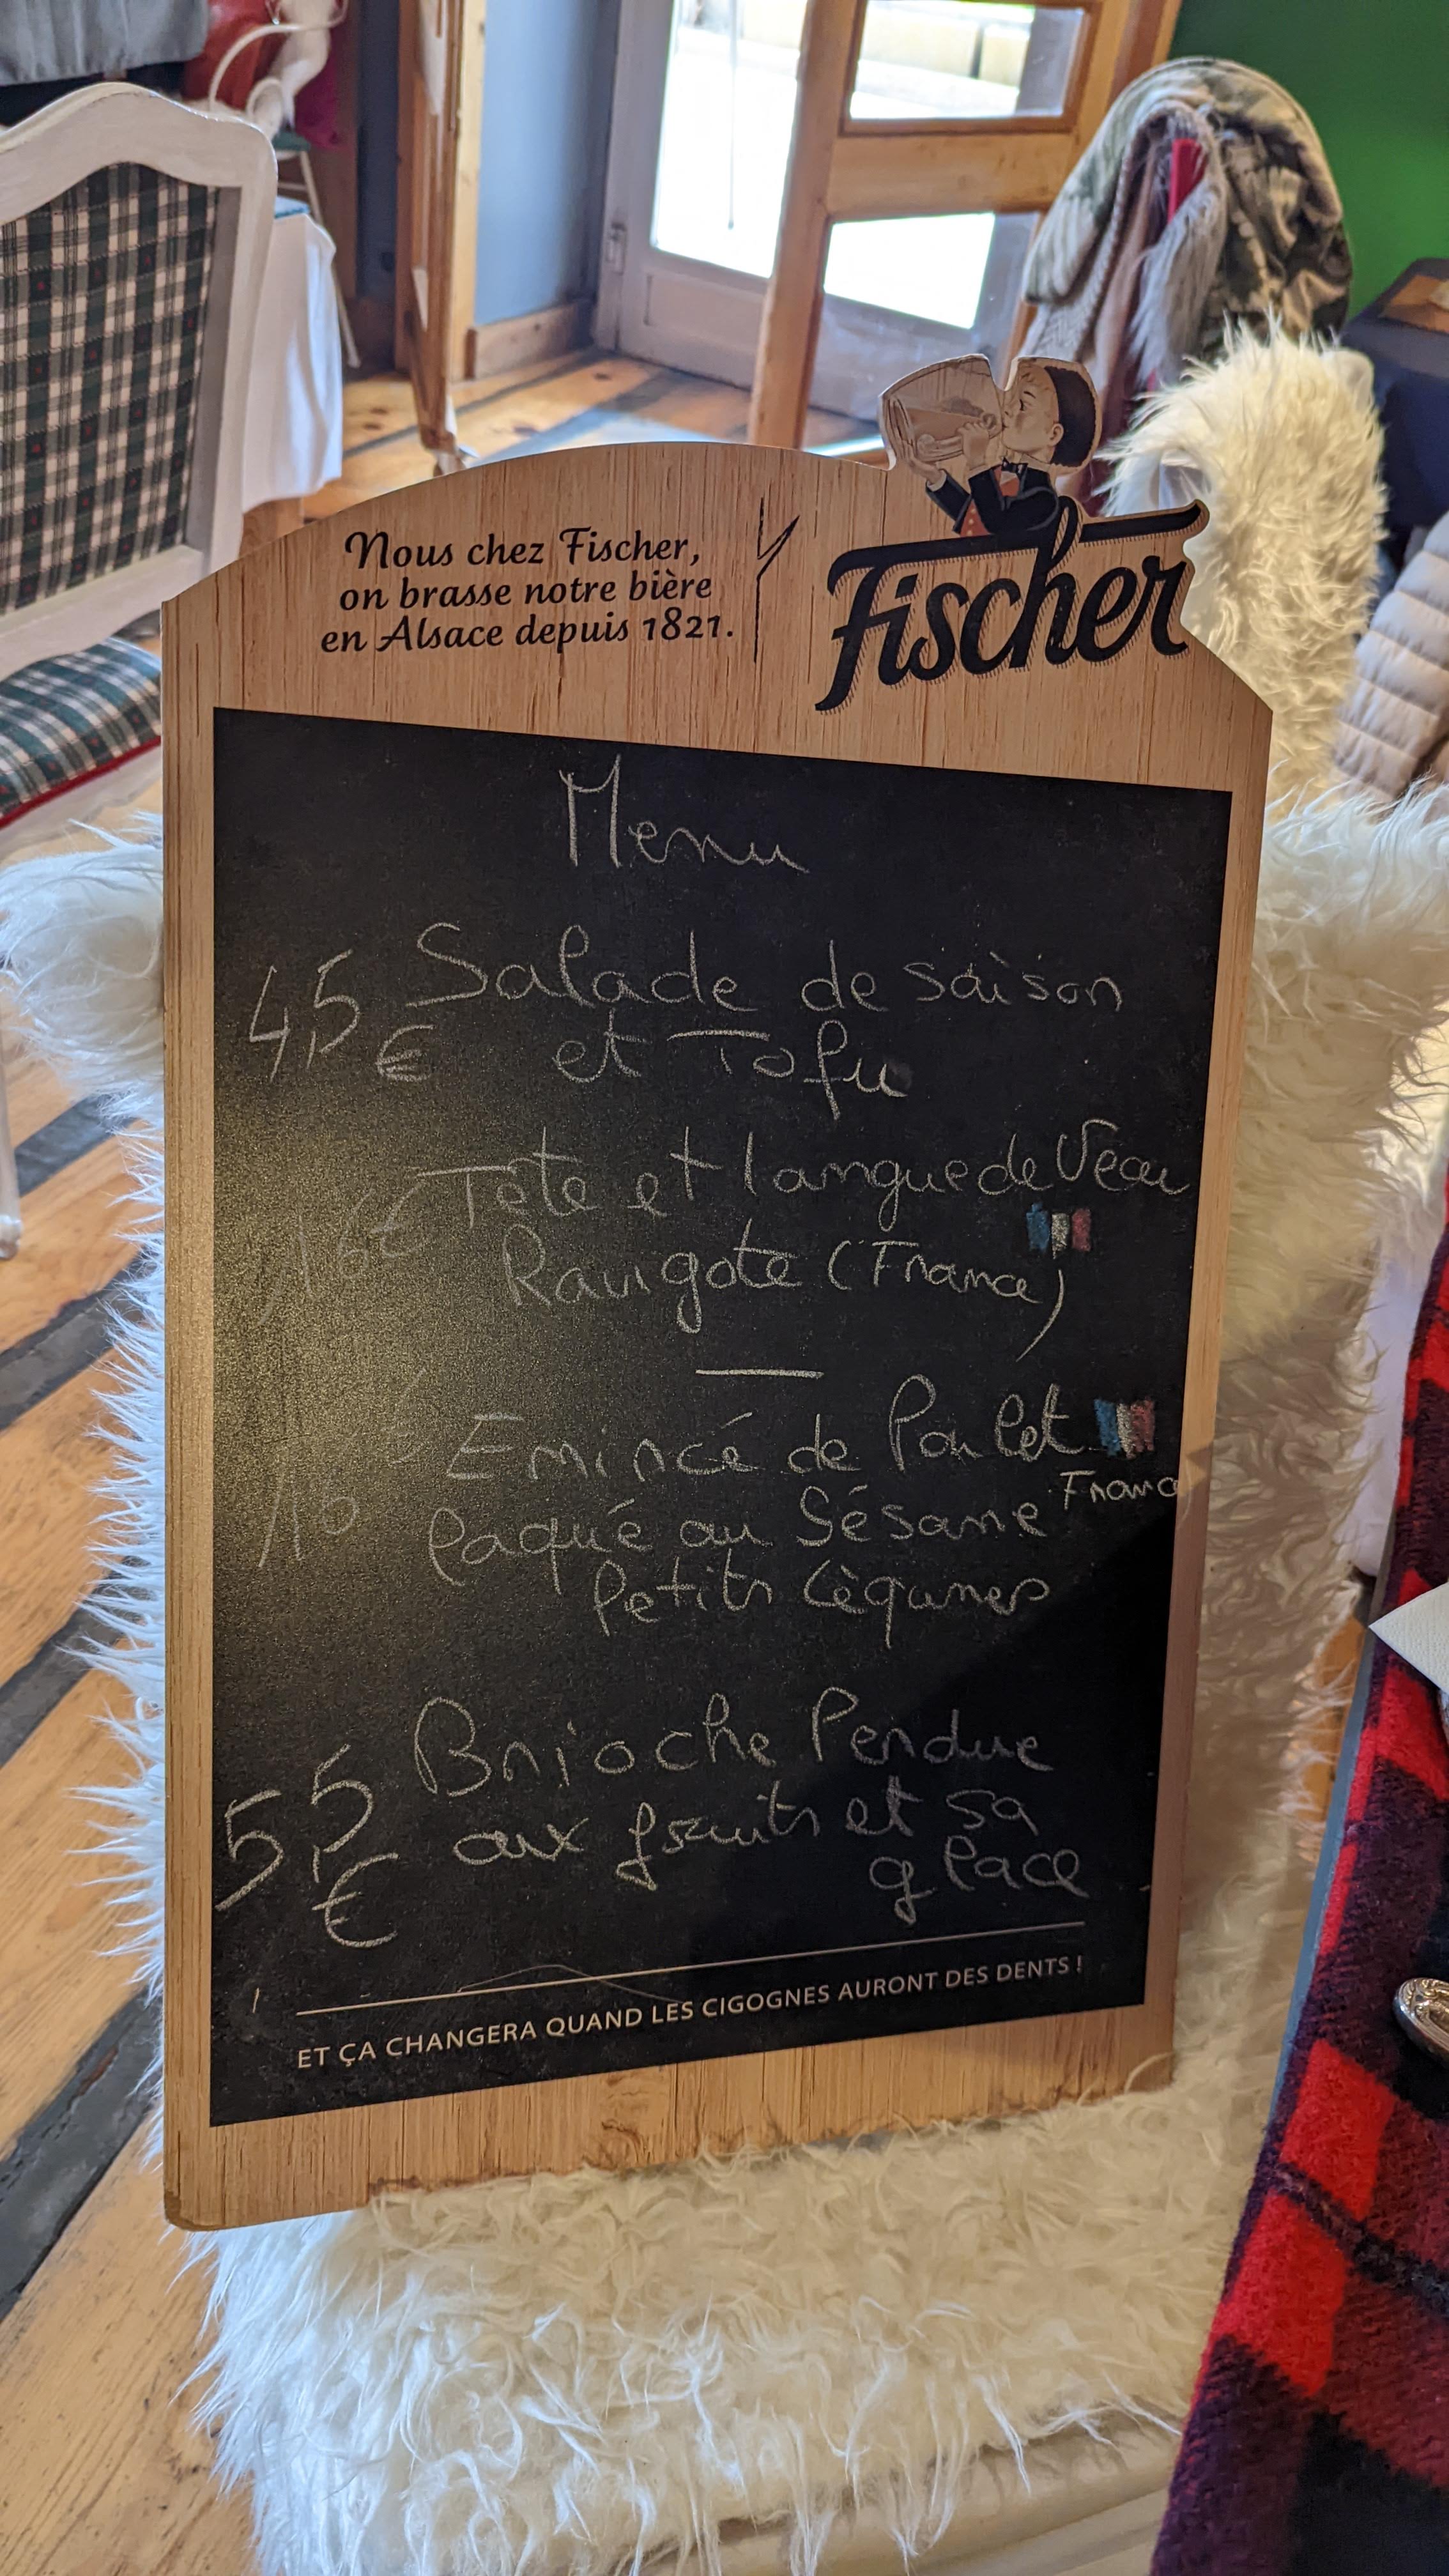 Nous chez Fischer,
on brasse notre bière
en Alsace depuis 1821.
Fischer
Menu
4,5 € Salade de saison
et Tofu
16€ Tête et langue de Veau
Ravigote (France)
Emincé de Poulet
France
15 laqué au Sésame
Petits Légumes
5,5 € Brioche Perdue
aux fruits et sa
glace
ET ÇA CHANGERA QUAND LES CIGOGNES AURONT DES DENTS !